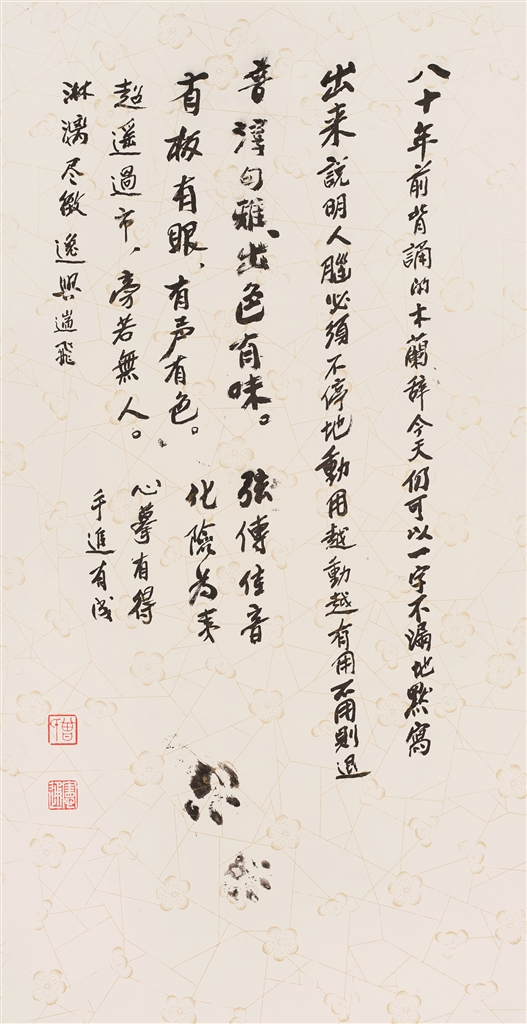 八十年前背誦的木蘭辞今天仍可以一字不漏地默寫
出来説明人腦必須不停地動用越動越有用不用則退
音淳句雅、出色有味。
有板有眼，有声有色。
超遥過市，旁若無人。
淋漓尽緻逸興遄飛
弦傳佳音
化險为夷
心摹有得
手進有成